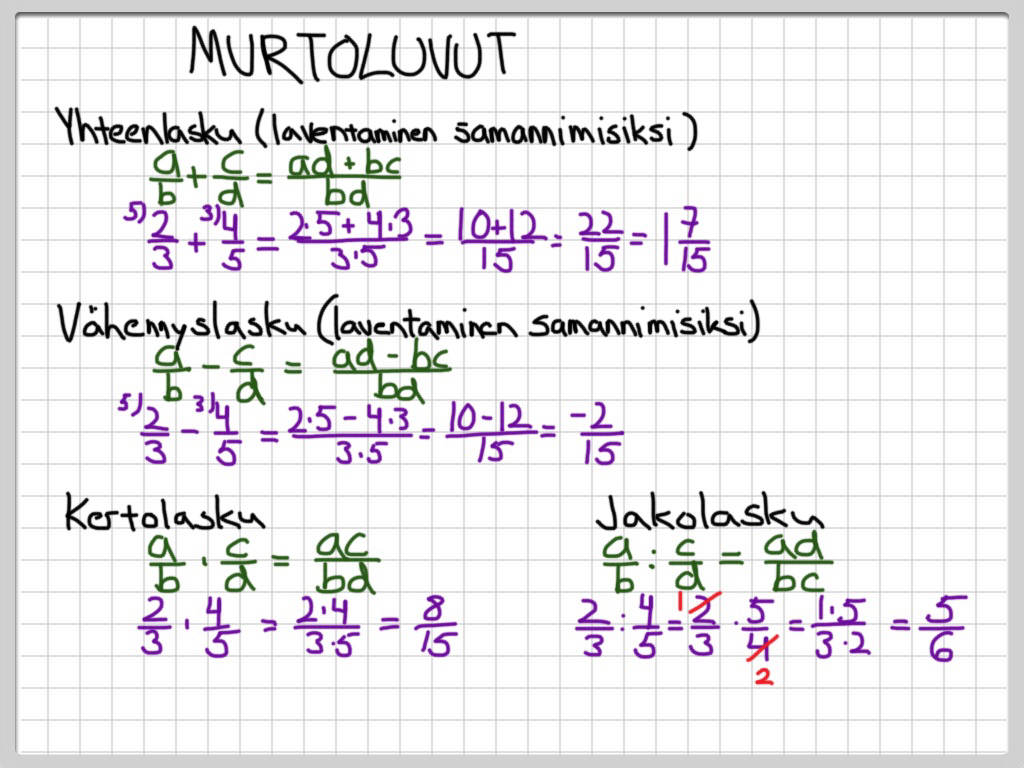 MURTOLUVUT
Yhteenlasku (laventaminen samannimisiksi)
a/b + c/d = (ad + bc)/bd
5) 2/3 + 3) 4/5 = (2·5 + 4·3)/(3·5) = (10+12)/15 = 22/15 = 1 7/15
Vähemyslasku (laventaminen samannimisiksi)
a/b - c/d = (ad - bc)/bd
5) 2/3 - 3) 4/5 = (2·5 - 4·3)/(3·5) = (10-12)/15 = -2/15
Kertolasku
a/b · c/d = ac/bd
2/3 · 4/5 = (2·4)/(3·5) = 8/15
Jakolasku
a/b : c/d = ad/bc
2/3 : 4/5 = 1 2/3 · 5/4 2 = (1·5)/(3·2) = 5/6